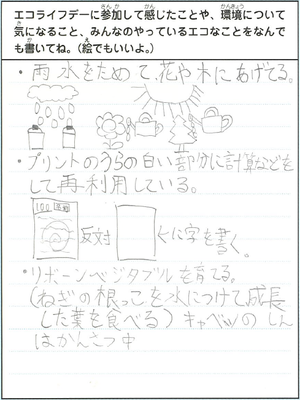 エコライフデーに参加して感じたことや、環境について
気になること、みんなのやっているエコなことをなんで
も書いてね。(絵でもいいよ。)
・雨水をためて、花や木にあげてる。
・プリントのうらの白い部分に計算などを
して再利用している。
100
反対
ぐに字を書く。
・リボーンベジタブルを育てる。
(ねぎの根っこを水につけて成長
した葉を食べる) キャベツのしん
はかんさつ中